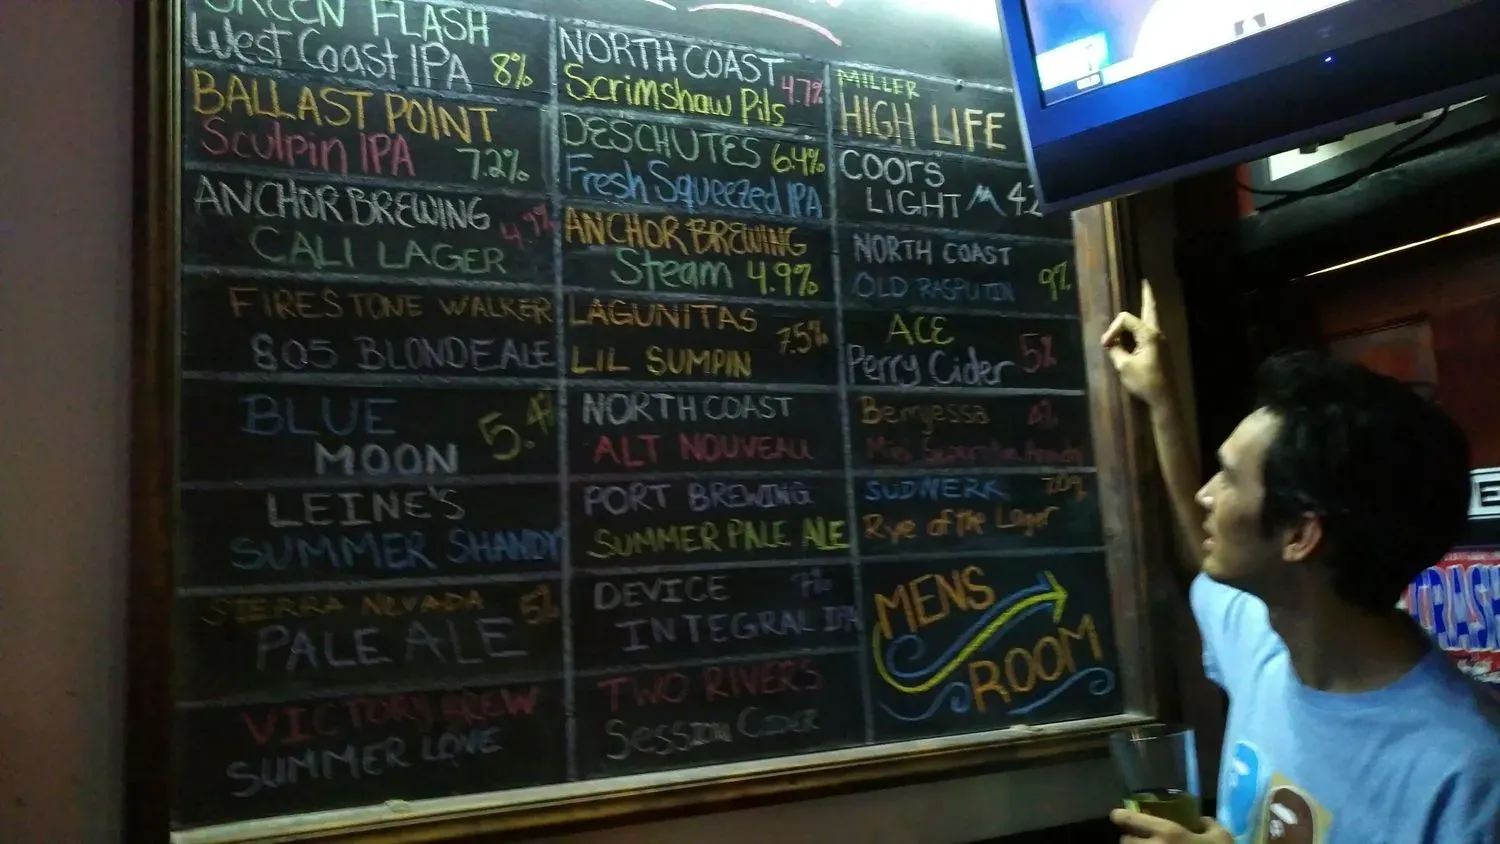 GREEN FLASH
West Coast IPA 8%
BALLAST POINT
Sculpin IPA 7.2%
ANCHOR BREWING
CALI LAGER 4.9%
FIRESTONE WALKER
805 BLONDE ALE
BLUE
MOON 5.4%
LEINE'S
SUMMER SHANDY
SIERRA NEVADA 5%
PALE ALE
VICTORY BREW
SUMMER LOVE
NORTH COAST 4.7%
Scrimshaw Pils
DESCHUTES 6.4%
Fresh Squeezed IPA
ANCHOR BREWING
Steam 4.9%
LAGUNITAS 7.5%
LIL SUMPIN
NORTH COAST
ALT NOUVEAU
PORT BREWING
SUMMER PALE ALE
DEVICE 7%
INTEGRAL IPA
TWO RIVERS
SESSION CIDER
MILLER
HIGH LIFE
COORS
LIGHT 42
NORTH COAST
OLD RASPUTIN 9%
ACE
Perry Cider 5%
Berryessa 4%
SUDWERK
Rye of the Lager
MENS
ROOM